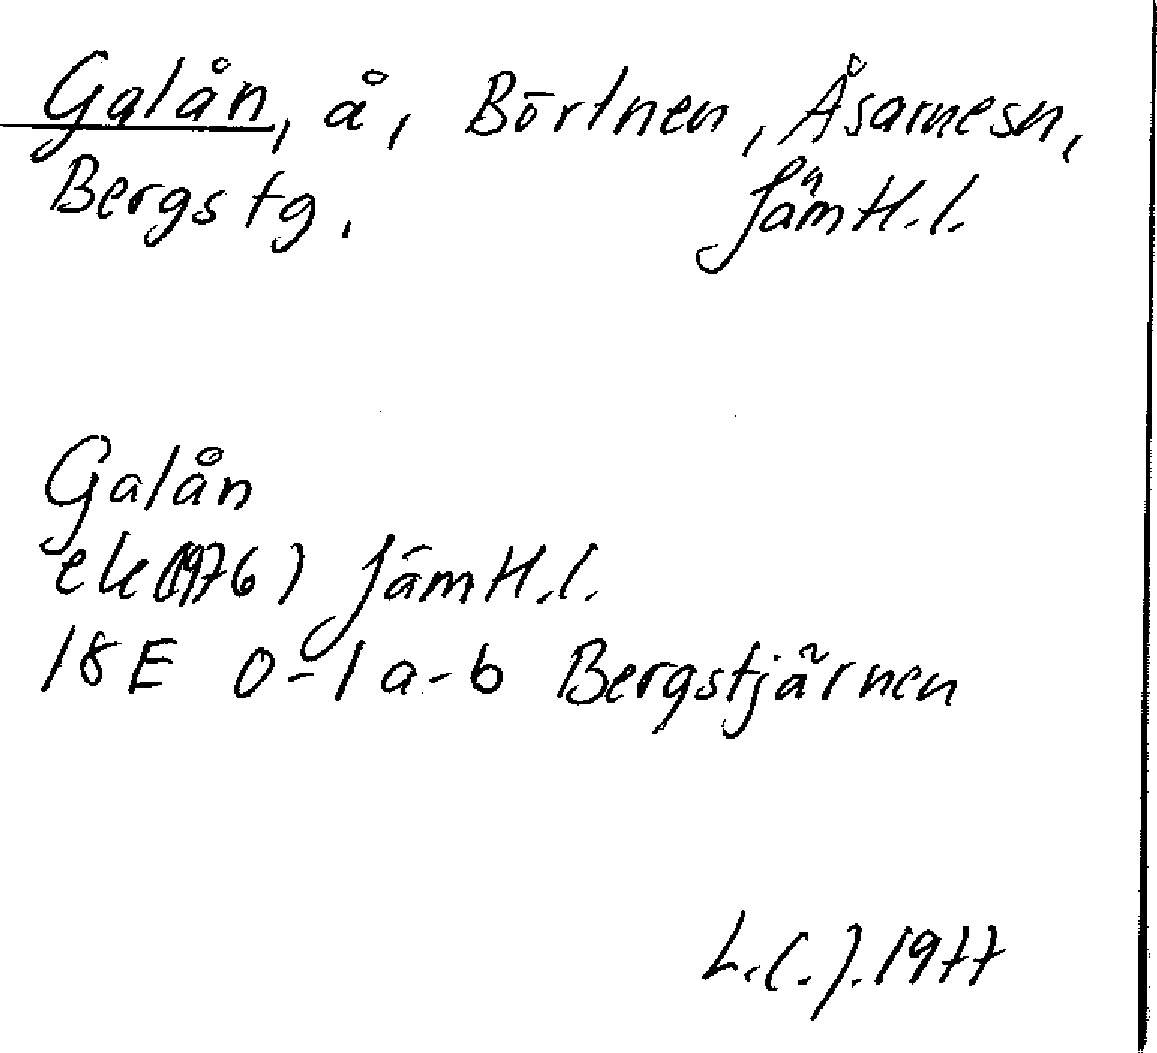 Galån, å, Börtnen, Åsarnesn,
Bergs tg. Jämtl.l.
Galån
ek(1976) Jämtl.l.
18E 0-1 a-b Bergstjärnen
L.C.J. 1977